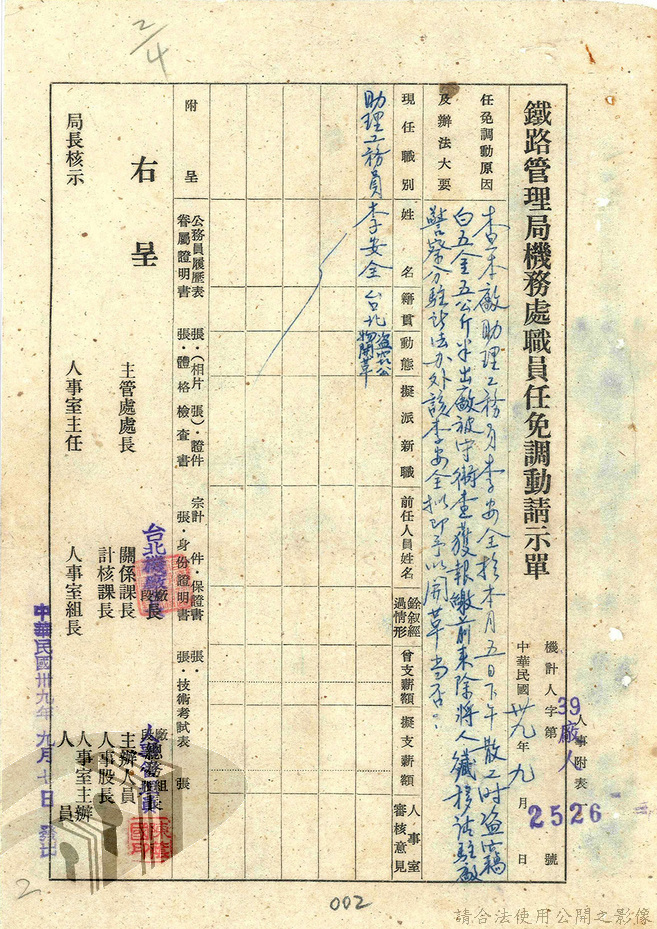 2/4
鐵路管理局機務處職員任免調動請示單
人事附表
39廠人
機計人字第2526號
中華民國卅九年九月 日
任免調動原因及辦法大要
查本廠助理工務員李安全於本月五日下午散工時盜竊
白五金五公斤半出廠被守衛查獲報繳前來除將人贓移請駐廠
警察分駐所法办外該李安全拟即予以開革當否?
現任職別
姓名
籍貫
動態
擬派新職
前任人員姓名
銓敘經過情形
曾支薪額
擬支薪額
人事室審核意見
助理工務員 李安全 台北 盜竊公物開革
附呈
公務員履歷表 張・(相片 張)・證件 宗計 件・保證書 張・
眷屬證明書 張・體格檢查書 張・身份證明書 張・技術考試表 張
右呈
主管處處長
人事室主任
局長核示
台北機廠
廠段長
關係課長
計核課長
人事室組長
廠總務組長
主辦人員
人事股長
人事室主辦人員
中華民國卅九年九月七日發出
2
002
請合法使用公開之影像